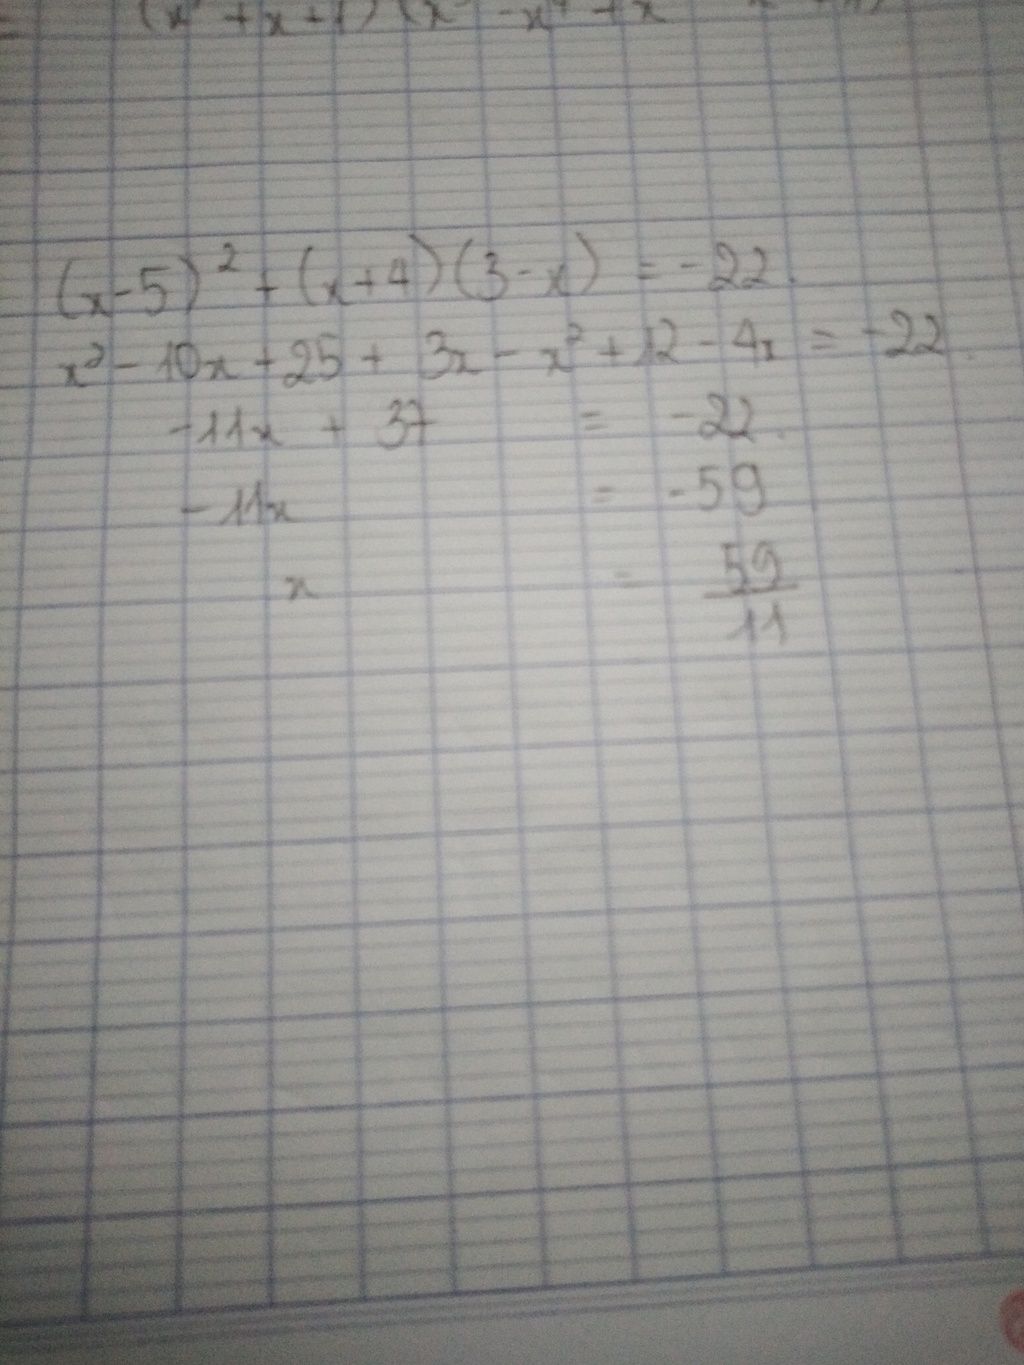 (x-5)² + (x+4)(3-x) = -22.
x² - 10x + 25 + 3x - x² + 12 - 4x = -22.
-11x + 37 = -22.
-11x = -59
x = 59/11